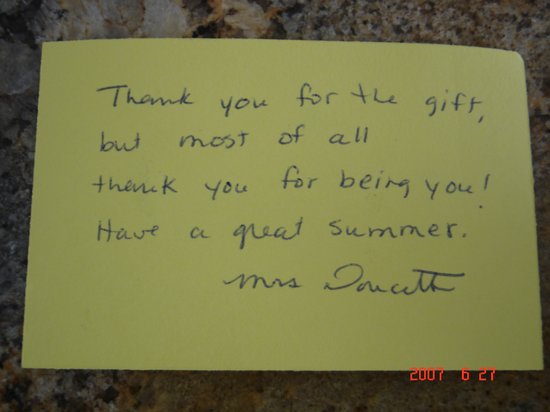 Thank you for the gift,
but most of all
thank you for being you!
Have a great summer.
Mrs Doucette
2007 6 27